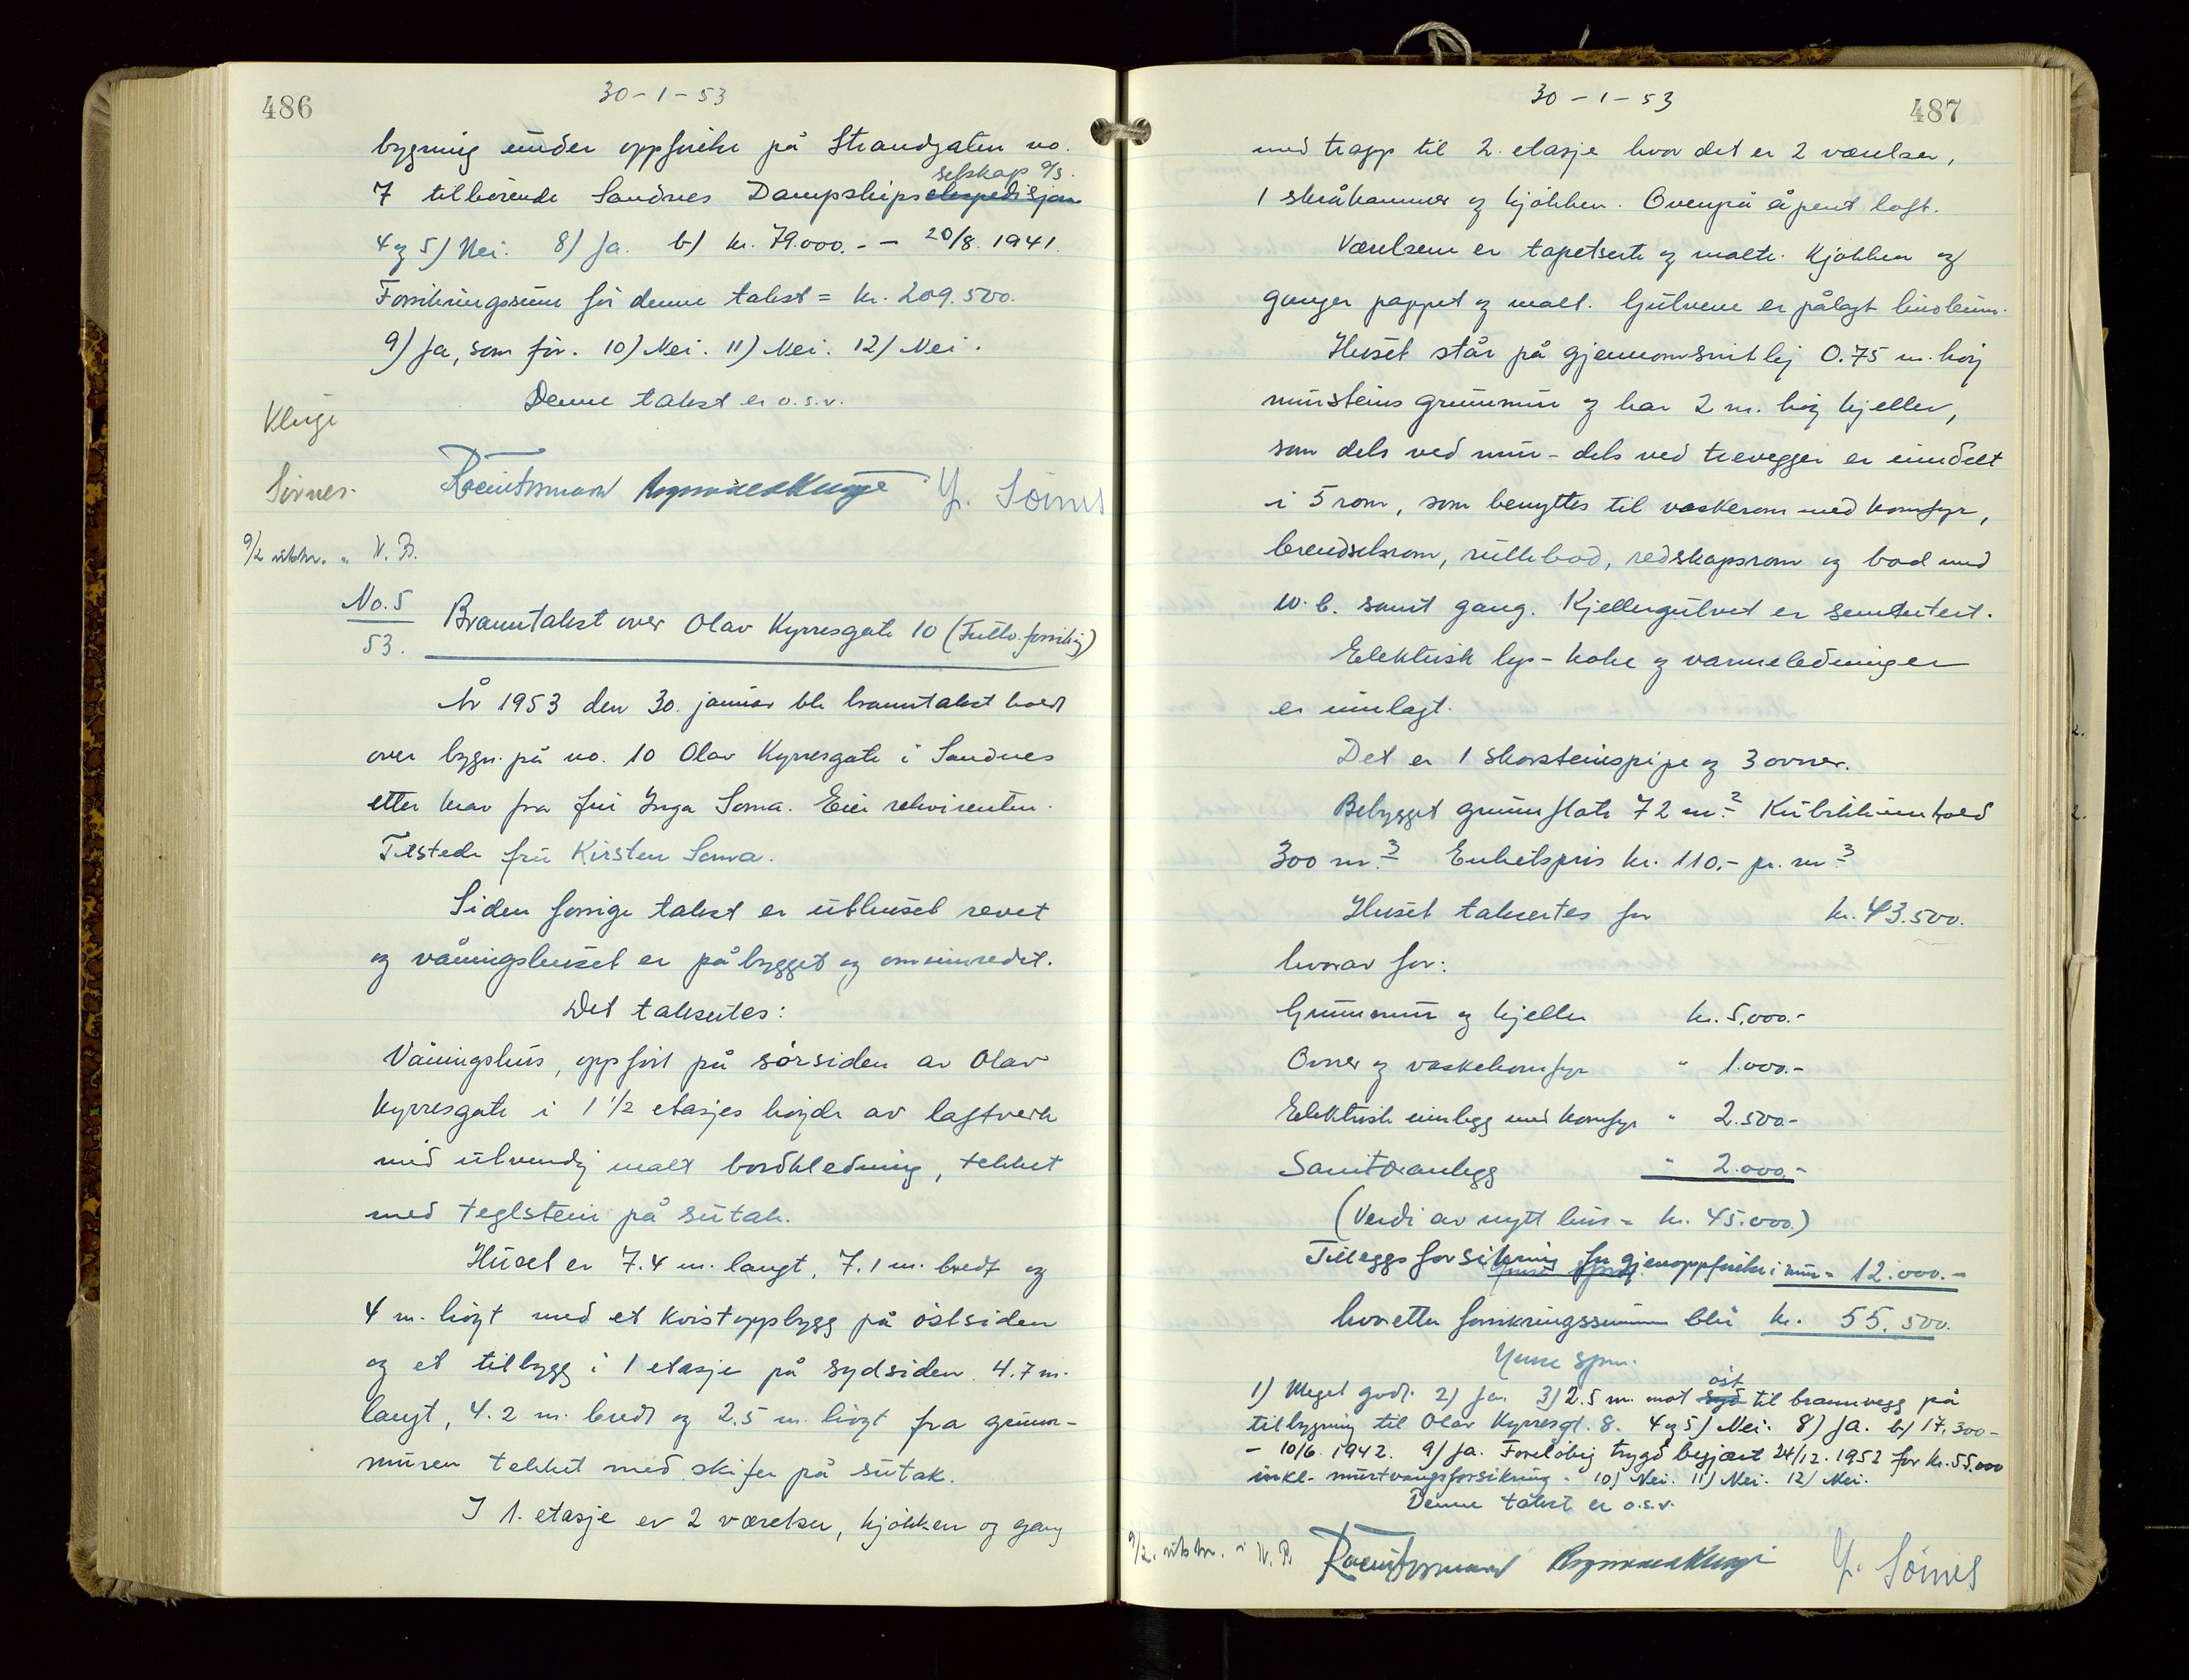 486
30-1-53
bygning under oppförelse på Strandgaten no.
selskap A/S.
7 tilhörende Sandnes Dampskipsekspedisjon
4 og 5) Nei. 8) Ja. b) kr. 79.000.- - 20/8. 1941.
Forsikringssum för denne takst = kr. 209.500.
9) Ja, som för. 10) Nei. 11) Nei. 12) Nei.
Denne takst er o.s.v.
Kluge
Sörnes.
9/2 utskr. " N. B.
No. 5
53.
Branntakst over Olav Kyrresgate 10 (Fullv. forsikring)
År 1953 den 30. januar ble branntakst holdt
over bygn. på no. 10 Olav Kyrresgate i Sandnes
etter krav fra fru Inga Soma. Eier rekvirenten.
Tilstede fru Kirsten Soma.
Siden forrige takst er uthuset revet
og våningshuset er påbygget og ominnredet.
Det takseres:
Våningshus, oppfört på sörsiden av Olav
Kyrresgate i 1 1/2 etasjes höjde av laftverk
med utvendig malt bordkledning, tekket
med teglstein på sutak.
Huset er 7.4 m. langt, 7.1 m. bredt og
4 m. höyt med et kvistoppbygg på östsiden
og et tilbygg i 1 etasje på sydsiden 4.7 m.
langt, 4.2 m. bredt og 2.5 m. höyt fra grunn-
muren tekket med skifer på sutak.
I 1. etasje er 2 værelser, kjökken og gang
30-1-53
487
med trapp til 2. etasje hvor det er 2 værelser,
1 skråkammer og kjökken. Ovenpå åpent loft.
Værelsene er tapetserte og malte. Kjökken og
ganger pappet og malt. Gulvene er pålagt linoleum.
Huset står på gjennomsnitlig 0.75 m. höy
mursteins grunnmur og har 2 m. höy kjeller,
som dels ved mur- dels ved trevegger er inndelt
i 5 rom, som benyttes til vaskerom med komfyr,
brendselsrom, rullebod, redskapsrom og bad med
w.c. samt gang. Kjellergulvet er sementert.
Elektrisk lys- koke og varmeledninger
er innlagt.
Det er 1 skorsteinspipe og 3 ovner.
Bebygget grunnflate 72 m². Kubikkinnhold
300 m³. Enhetspris kr. 110.- pr. m³
Huset takseres for kr. 43.500.
hvorav for:
Grunnmur og kjeller kr. 5.000.-
Ovner og vaskekomfyr " 1.000.-
Elektrisk innlegg med komfyr " 2.500.-
Sanitæranlegg " 2.000.-
(Verdi av nytt hus = kr. 45.000.)
Tilleggsforsikring for gjenoppförelse i mur = 12.000.-
hvoretter forsikringssummen blir kr. 55.500.
Ymse spm.
1) Meget godt. 2) Ja. 3) 2.5 m. mot syd öst til brannvegg på
tilbygning til Olav Kyrresgt. 8. 4 og 5) Nei. 8) Ja. b) 17.300-
- 10/6. 1942. 9) Ja. Forelöbig trygd begjært 24/12. 1952 for kr. 55.000
inkl. murtvangsforsikring. 10) Nei. 11) Nei. 12) Nei.
Denne takst er o.s.v.
9/2. utskr. " N. B.
Y. Sörnes